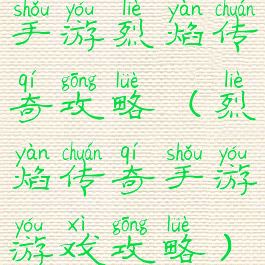 shǒu yóu liè yàn chuán
手游烈焰传
qí gōng lüè liè
奇攻略（烈
yàn chuán qí shǒu yóu
焰传奇手游
yóu xì gōng lüè
游戏攻略）